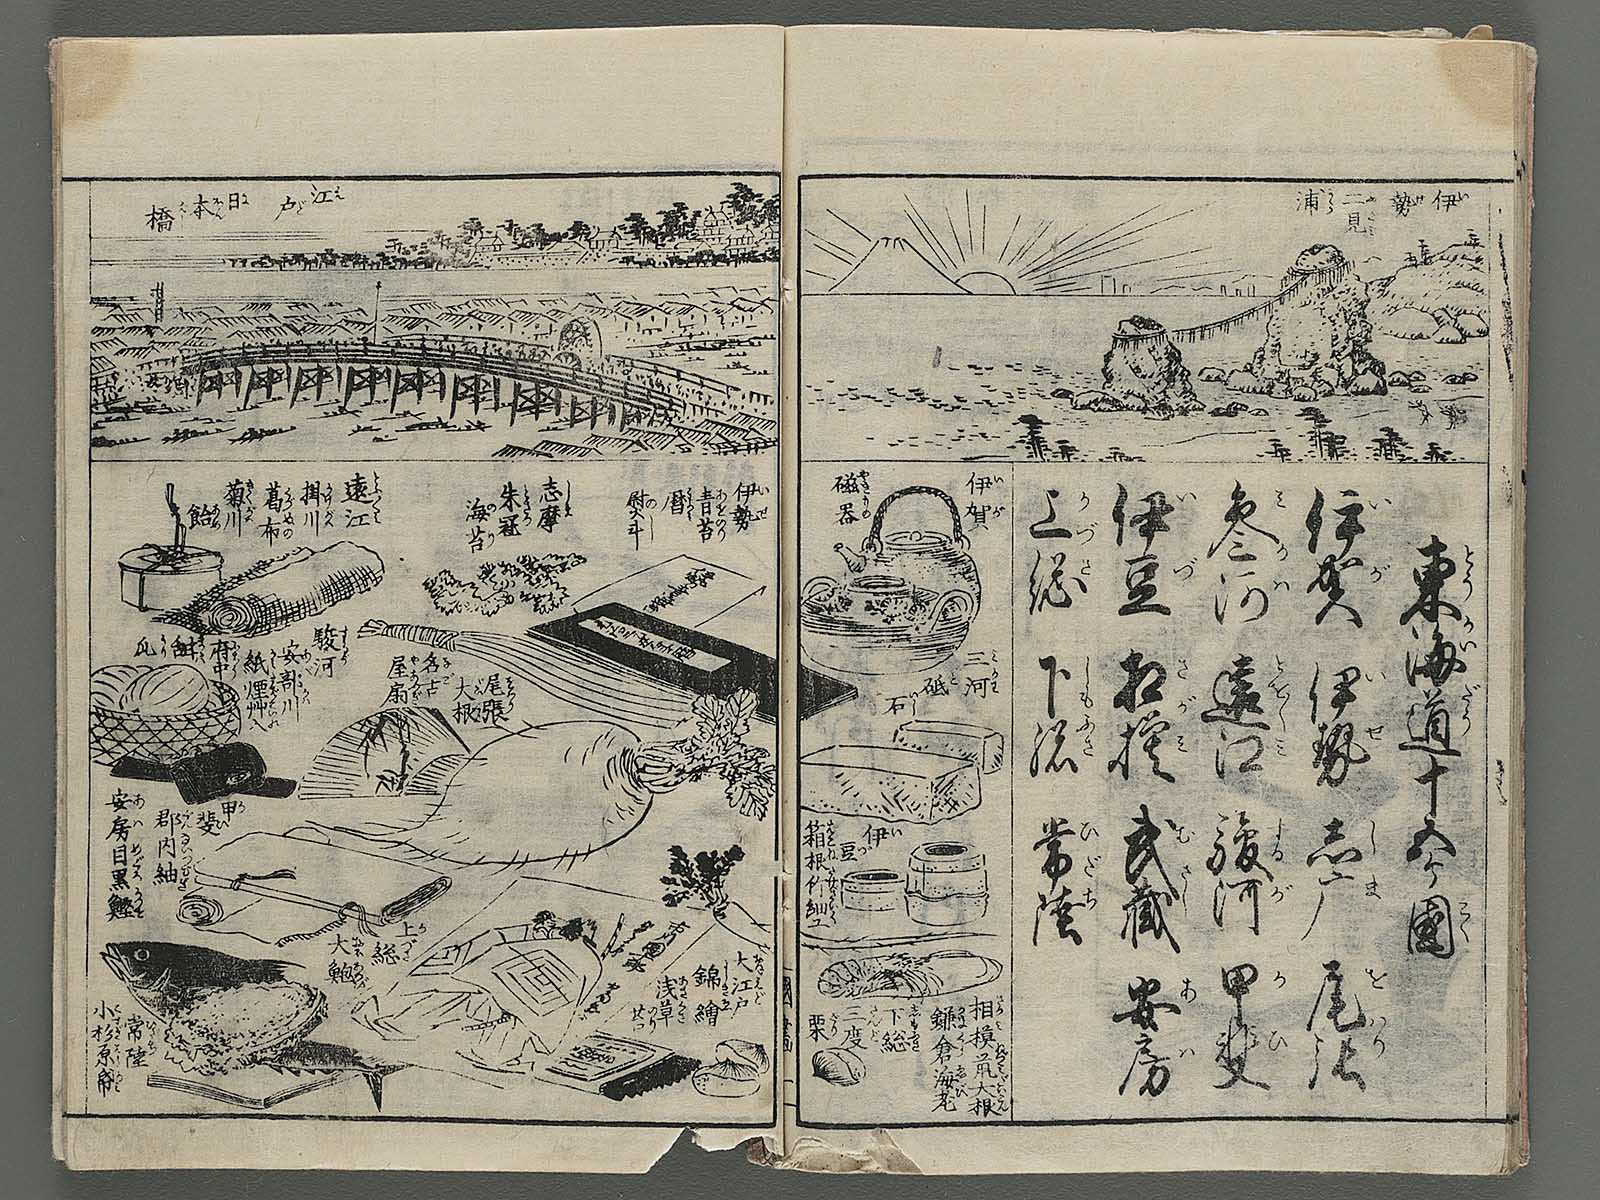 伊勢
二見
浦
東海道十五ヶ國
伊賀 伊勢 志广 尾张
参河 遠江 駿河 甲斐
伊豆 相摸 武藏 安房
上総 下総 常陸
伊賀
磁器
三河
砥
石
伊
豆
箱根竹細工
相模前大根
鎌倉海老
下総
三度
栗
江
戸
日
本
橋
伊勢
青苔
暦
熨斗
志摩
海苔
遠江
掛川
葛布
菊川
飴
尾張
大根
名古
屋扇
駿河
安部川
紙煙艸入
府中
瓜
甲
斐
郡内紬
安房目黒鰹
上
総
大鮑
大江戸
錦繪
浅草
常陸
小杉原帋